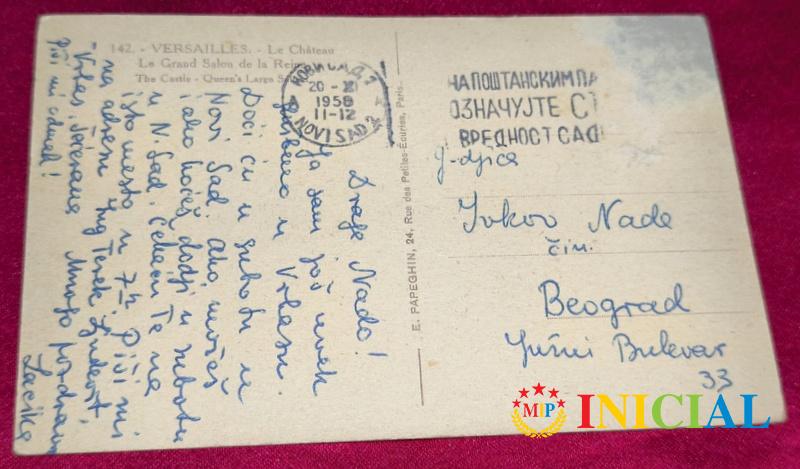 142. - VERSAILLES. - Le Château
Le Grand Salon de la Reine
The Castle - Queen's Large
20 - XI
1958
11-12
NOVI SAD 2
НА ПОШТАНСКИМ ПА
ОЗНАЧУЈТЕ СТ
ВРЕДНОСТ САД
E. PAPEGHIN, 24, Rue des Petites-Écuries, Paris.
Drage Nado!
Ja sam još uvek
službeno u Vrbasu.
Doći ću u subotu u
Novi Sad. Ako možeš
i ako hoćeš dodji u subotu
u N. Sad. Čekaću Te na
isto mesto u 7h. Piši mi
na adresu Ing Terek
Vrbas, Šećerana
Mnogo pozdrava
Piši mi odmah!
Lacike
G-djica
Jokov Nada
čin.
Beograd
Južni Bulevar
33
MIP
INICIAL